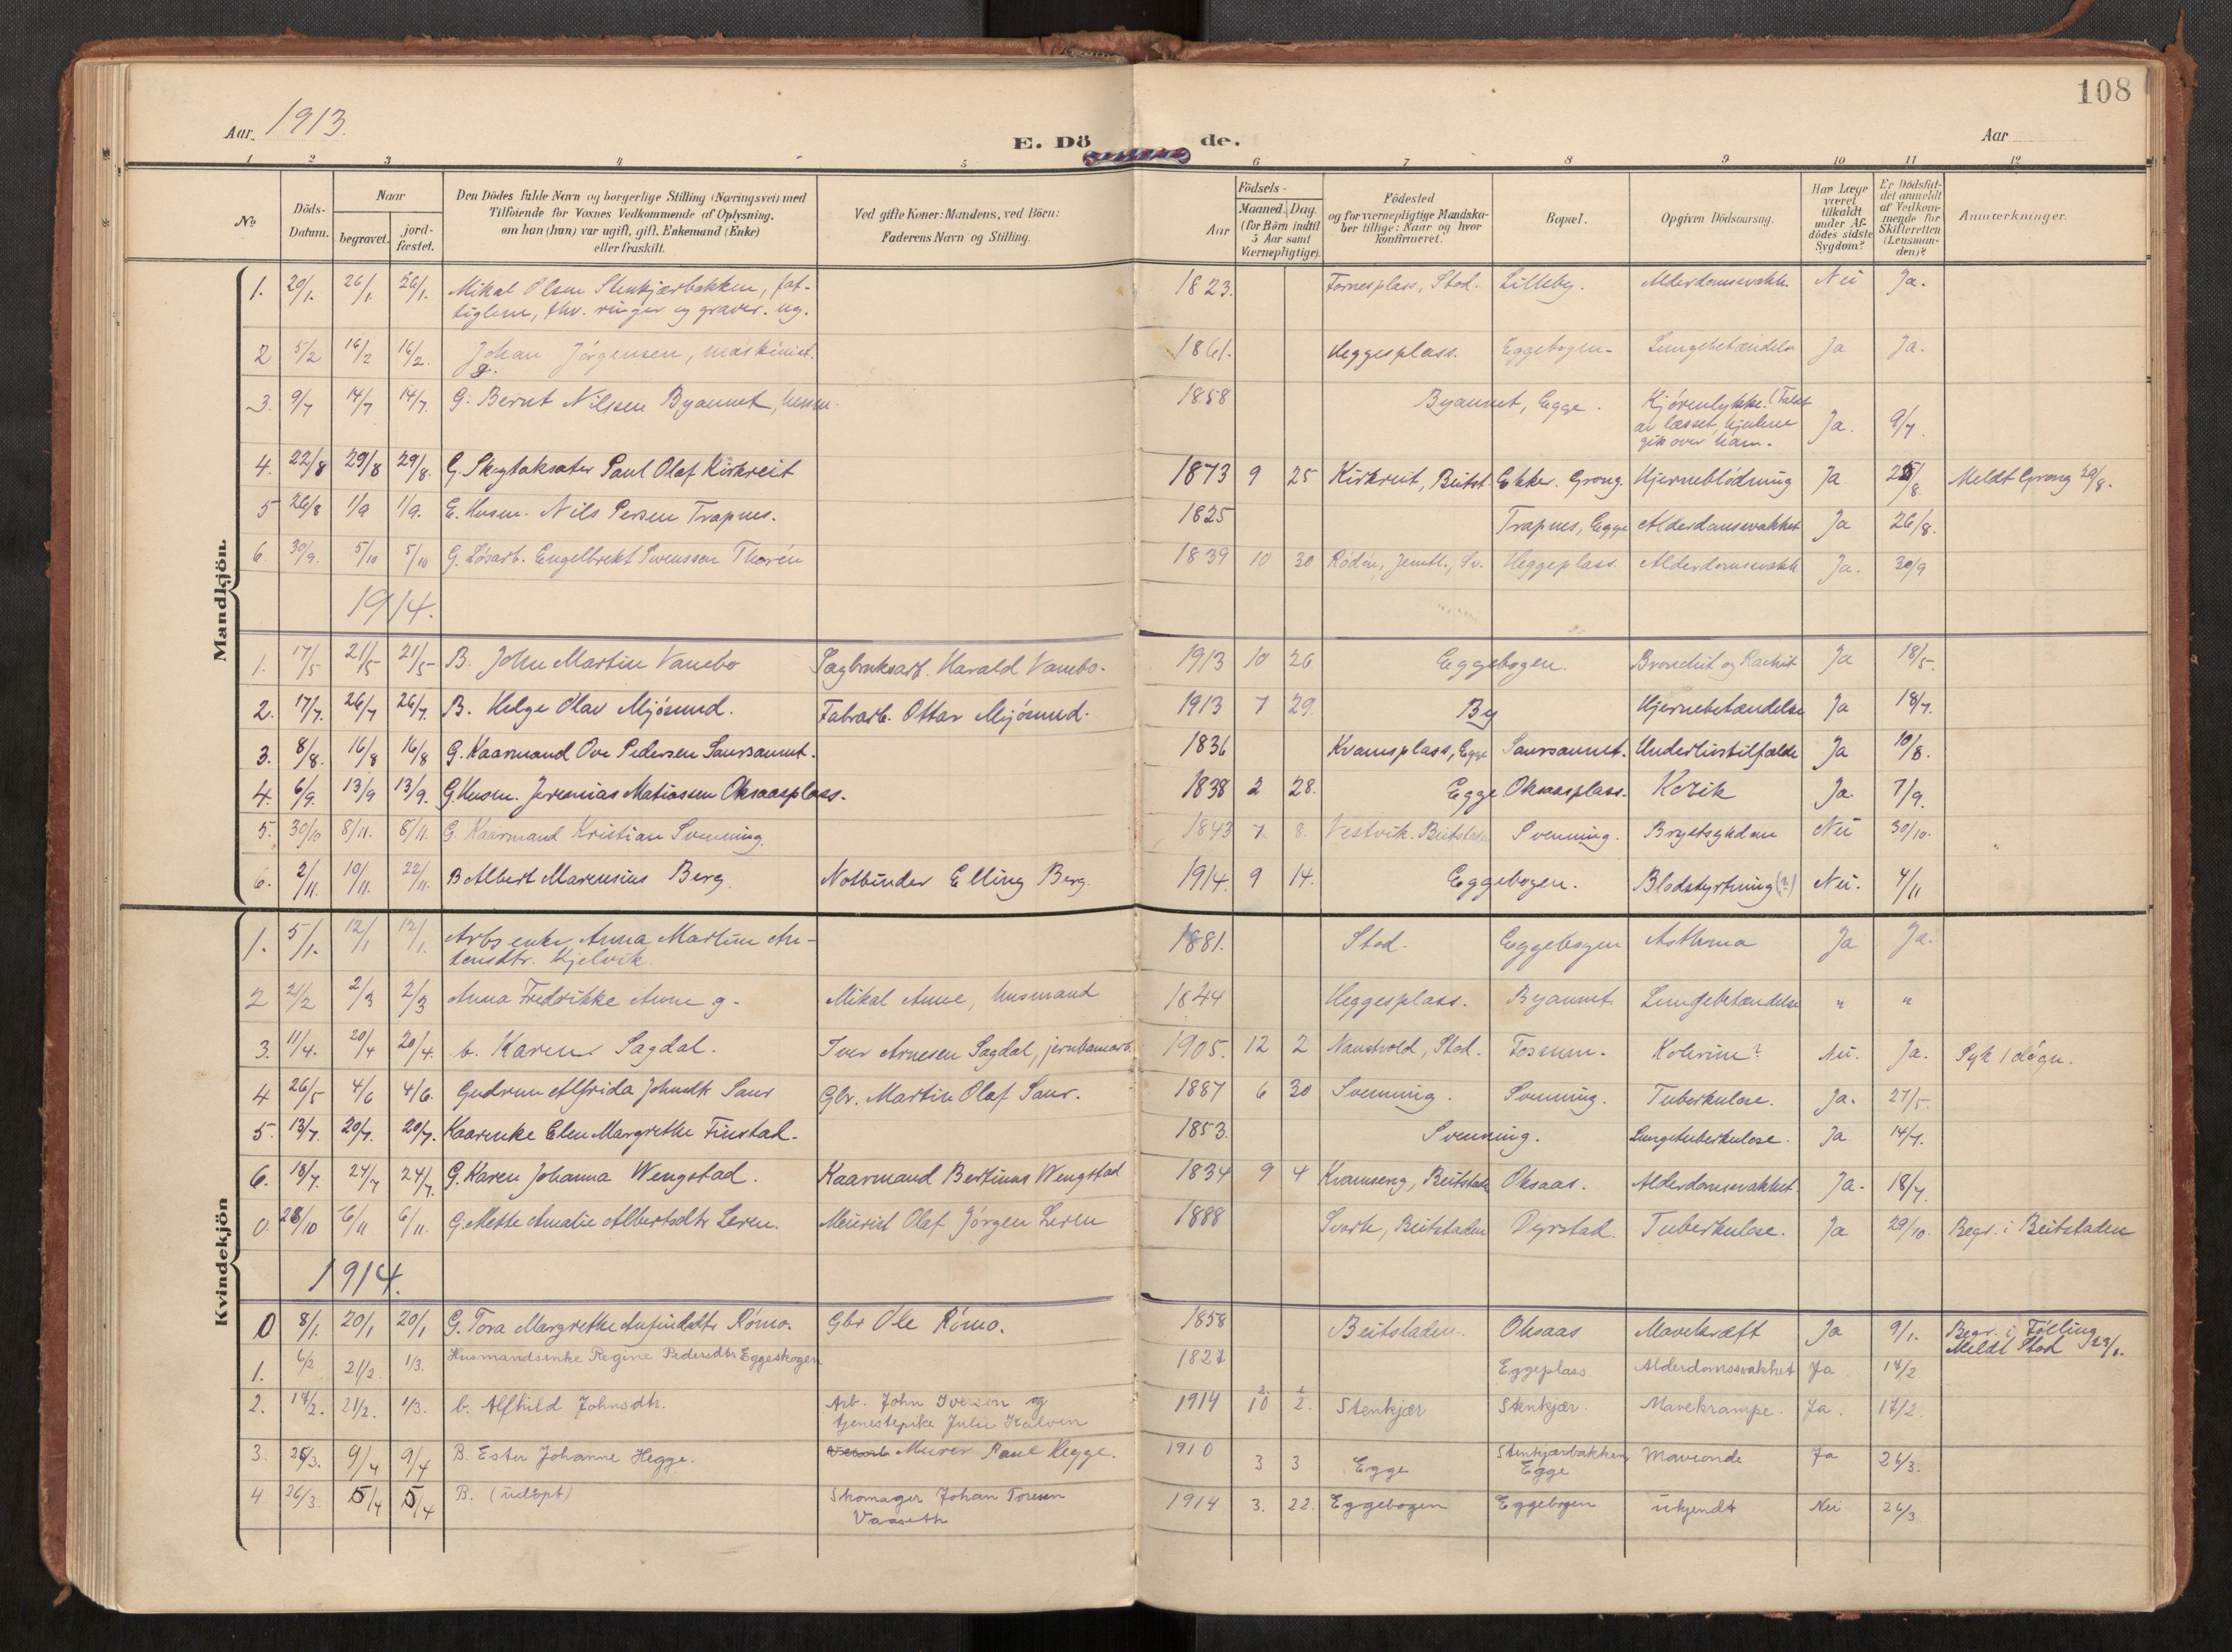 108
Aar 1913.
E. Dö de.
Aar
1 2 3 4 5 6 7 8 9 10 11 12
No.
Döds-Datum.
Naar
begravet.
jord-fæstet.
Den Dödes fulde Navn og borgerlige Stilling (Næringsvei) med
Tilföiende for Voxnes Vedkommende af Oplysning,
om han (hun) var ugift, gift, Enkemand (Enke)
eller fraskilt.
Ved gifte Koner: Mandens, ved Börn:
Faderens Navn og Stilling.
Födsels-
Aar
Maaned. Dag.
(for Börn indtil
5 Aar samt
Værnepligtige).
Födested
og for værnepligtige Mandska-
ber tillige: Naar og hvor
konfirmeret.
Bopæl.
Opgiven Dödsaarsag.
Har Læge
været
tilkaldt
under Af-
dödes sidste
Sygdom?
Er Dödsfal-
det anmeldt
af Vedkom-
mende for
Skifteretten
(Lensman-
den)?
Anmærkninger.
Mandkjön.
1. 20/1. 26/1 26/1. Mikal Olsen Stenkjærbakken, fat- 1823. Fornesplass, Stod. Lilleby. Alderdomsvakh. Nei Ja.
tiglem, fhv. ringer og graver. ug.
2 5/2 16/2 16/2. Johan Jörgensen, maskinist. 1861. Heggesplass. Eggebogen. Lungebetændelse Ja Ja.
g.
3. 9/7 14/7 14/7. G. Bernt Nilssen Byaunet, husm. 1858 Byaunet, Egge. Kjörenlykke. (Faldt
av læsset, hjulene Ja. 9/7.
gik over ham.
4. 22/8 29/8 29/8. G. Skogtaksator Paul Olaf Kirkreit 1873 9 25 Kirkreit, Beitst. Ekker. Grong. Hjerneblödning Ja 25/8. Meldt Grong 29/8.
5 26/8 1/9 1/9. E. Husm. Nils Persen Trapnes. 1825 Trapnes, Egge Alderdomsvakhet Ja 26/8.
6 30/9. 5/10 5/10 G. Lösarb. Engelbrekt Svensson Thorén 1839 10 30 Rödön, Jemtl., Sv. Heggeplass. Alderdomsvakh Ja. 30/9
1914.
1. 17/5 21/5 21/5 B. John Martin Vanebo Sagbruksarb. Harald Vanebo. 1913 10 26. Eggebogen. Bronchit og Rachit Ja 18/5.
2. 17/7. 26/7 26/7. B. Helge Olav Mjösund. Fabrarb. Ottar Mjösund. 1913 7 29. By Hjernebetændelse Ja 18/7.
3. 8/8. 16/8 16/8 G. Kaarmand Ove Pedersen Saursaunet. 1836 Kvamsplass, Egge Saursaunet. Underlivstilfælde Ja 10/8.
4. 6/9. 13/9 13/9. G. Husm. Jeremias Matiassen Oksaasplass. 1838 2 28. Egge Oksaasplass. Kolik Ja 7/9.
5. 30/10 8/11. 8/11. G. Kaarmand Kristian Svenning. 1843 7 8. Vestvik. Beitstaden Svenning. Brystsykdom Nei 30/10.
6. 2/11. 10/11. 22/11. B Albert Marensius Berg. Notbinder Elling Berg. 1914. 9 14. Eggebogen. Blodstyrtning (?) Nei. 4/11
Kvindekjön
1. 5/1. 12/1 12/1. Arbs enke Anna Martine An- 1881. Stod. Eggebogen Asthma Ja Ja.
tonsdtr. Kjelvik.
2 21/2 2/3 2/3 Anna Fredrikke Aune g. Mikal Aune, husmand 1844 Heggesplass. Byaunet Lungebetændelse " "
3. 11/4. 20/4 20/4. b. Karen Sagdal. Iver Arnesen Sagdal, jernbanearb. 1905. 12 2 Naustvold, Stod. Fossum. Kolerine? Nei. Ja. Syk 1 dögn.
4 26/5 4/6 4/6. Gudrun Alfrida Johnsdtr Saur Gbr. Martin Olaf Saur. 1887 6 30 Svenning. Svenning. Tuberkulose. Ja. 27/5.
5. 13/7. 20/7. 20/7. Kaarenke Elen Margrethe Finstad. 1853. Svenning. Lungetuberkulose. Ja 14/7.
6. 18/7. 24/7 24/7. G. Karen Johanna Wengstad. Kaarmand Bertinus Wengstad 1834 9 4 Kvamseng, Beitstaden Oksaas. Alderdomsvakhet. Ja. 18/7.
0. 28/10 6/11 6/11. G. Mette Amalie Albertsdtr Leren. Meierist Olaf Jörgen Leren 1888 Svarte, Beitstaden Dyrstad. Tuberkulose. Ja 29/10. Begr. i Beitstaden
1914.
0 8/1. 20/1 20/1 G. Tora Margrethe Anfindsdtr Römo. Gbr Ole Römo. 1858 Beitstaden. Oksaas Mavekræft Ja 9/1. Begr. i Fölling
Meldt Stod 23/1.
1. 6/2 21/2. 1/3. Husmandsenke Regine Pedersdtr Eggeskogen 1827 Eggeplass Alderdomssvakhet Ja 14/2
2. 17/2. 21/2. 1/3. b. Alfhild Johnsdtr. Arb. John Iversen og 1914 10 2. Stenkjær Stenkjær. Mavekrampe. Ja. 17/2.
tjenestepike Julie Kalven
3. 25/3. 9/4 9/4 B. Ester Johanne Hegge. Murer Paul Hegge. 1910 3 3 Egge Stenkjærbakken, Maveonde Ja 26/3.
Egge
4 26/3. 5/4 5/4 B. (udöpt) Skomager Johan Toresen 1914 3. 22. Eggebogen Eggebogen ukjendt Nei 26/3
Vaaseth